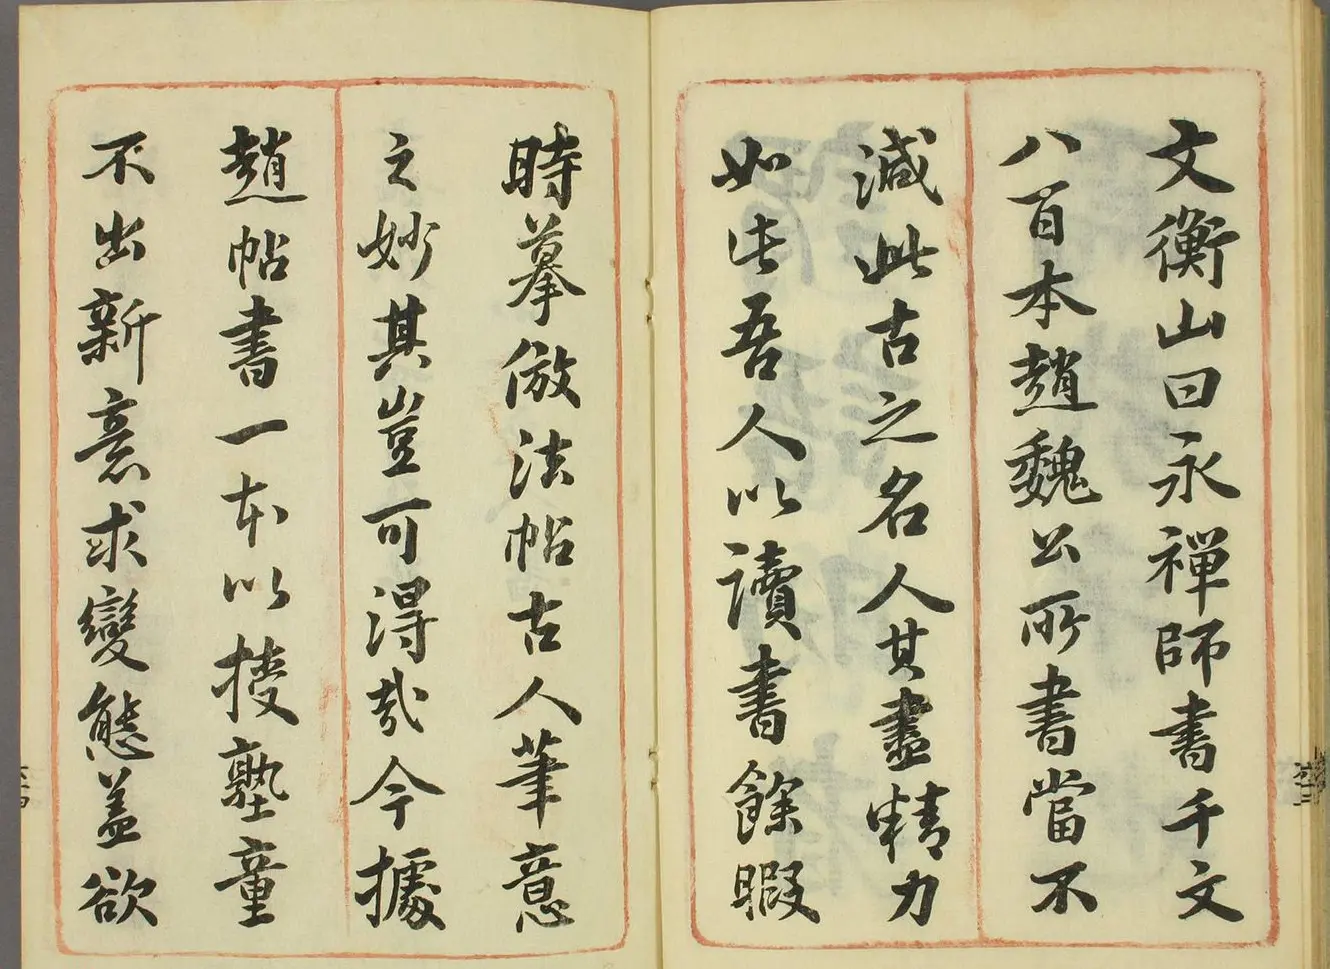 文衡山曰永禅師書千文
八百本趙魏公所書當不
減此古之名人其盡精力
如此吾人以讀書餘暇
時摹倣法帖古人筆意
之妙其豈可得哉今據
趙帖書一本以授塾童
不出新意求變態蓋欲